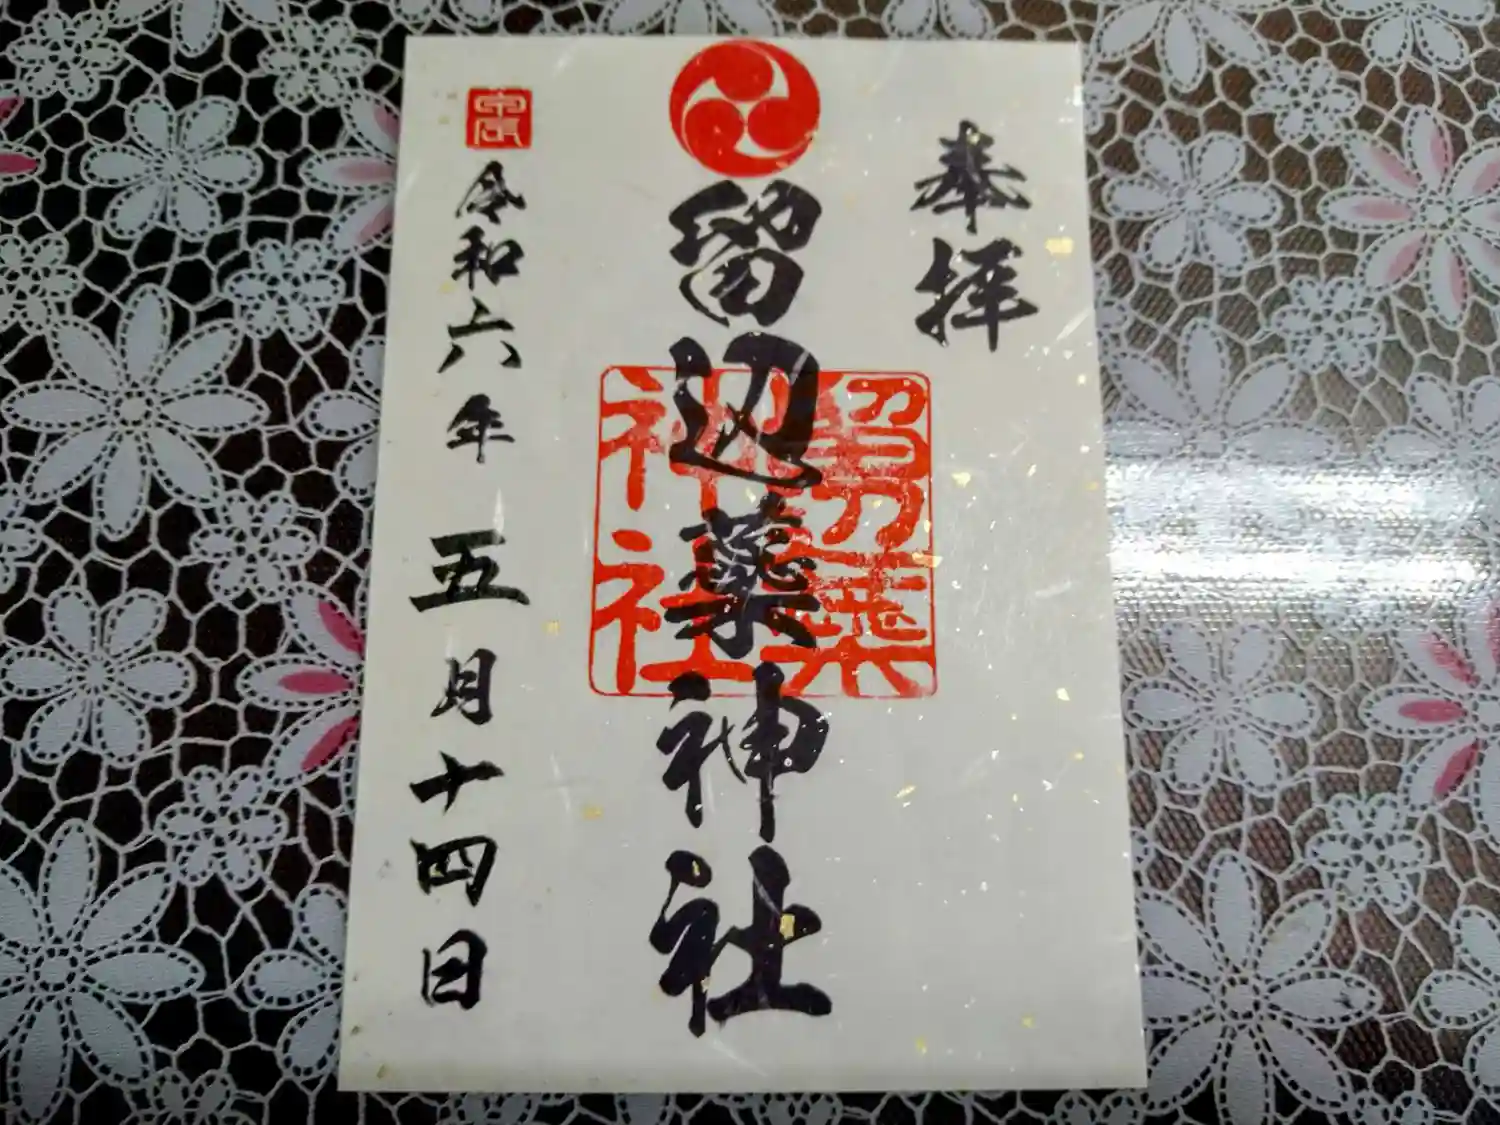 奉拝
留辺蘂神社
留辺蘂
神社
令和六年 五月十四日